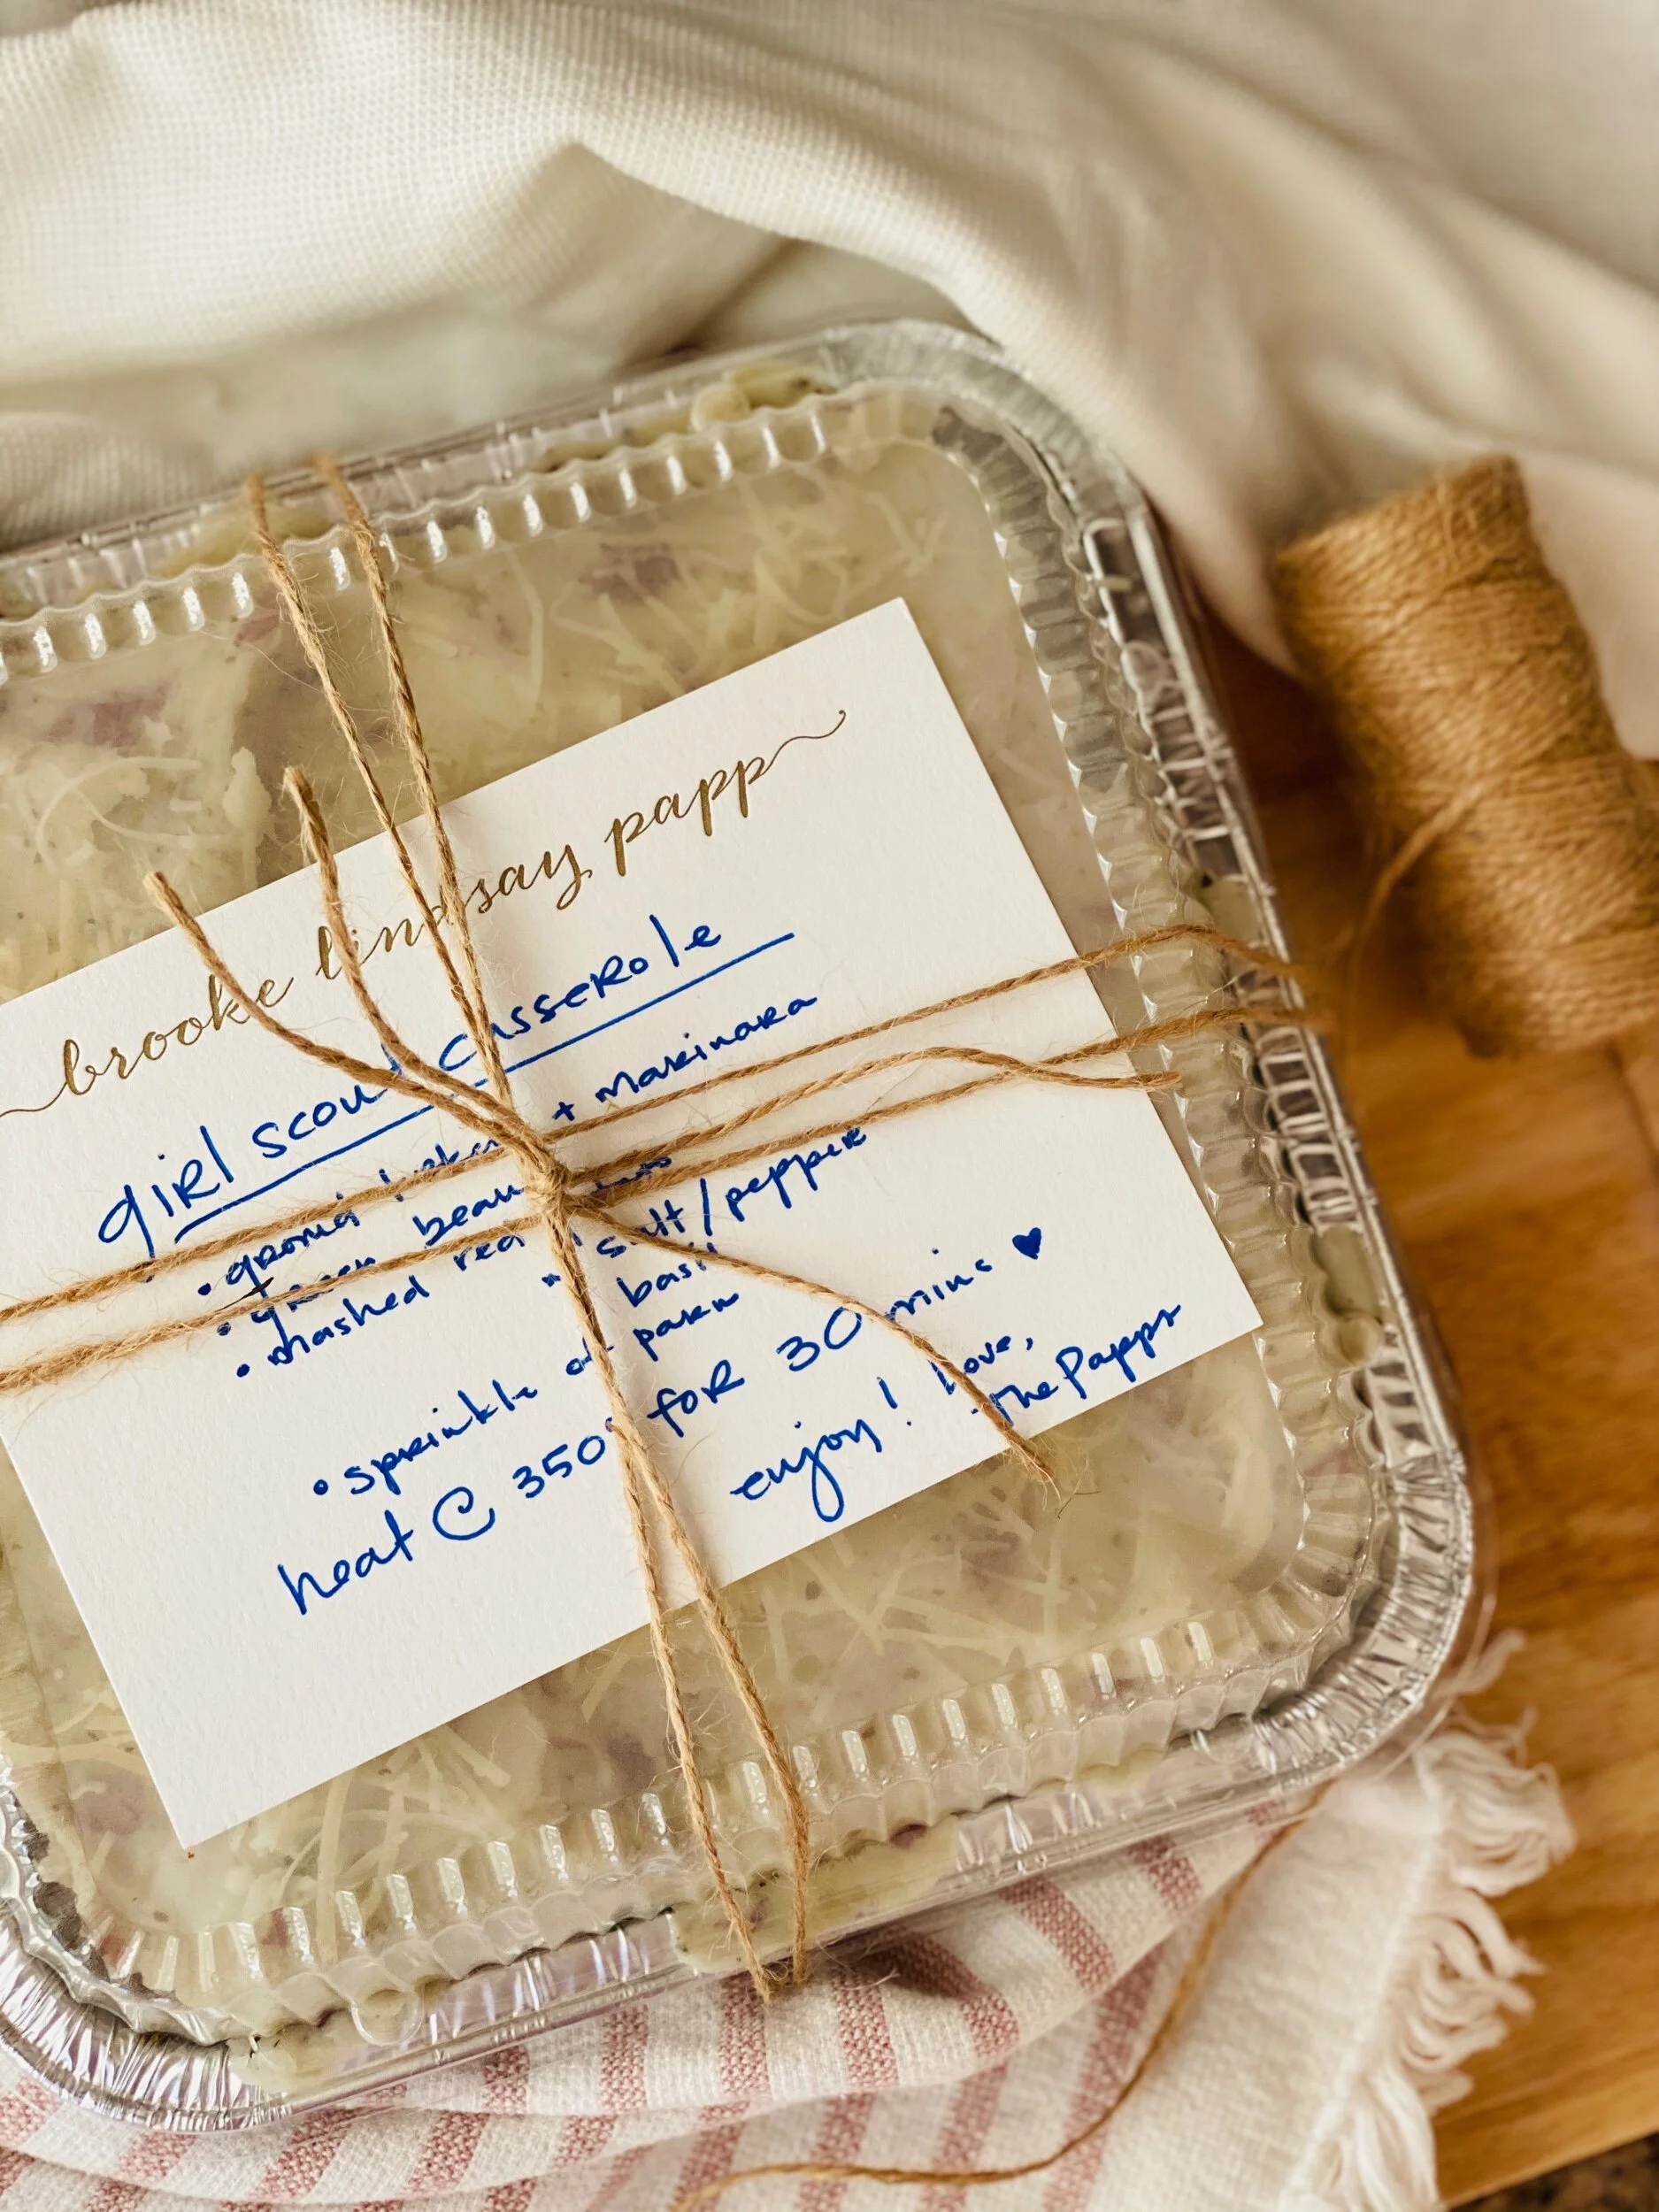 brooke lindsay papp
girl scout casserole
• ground + marinara
• green beans
• mashed red
salt/pepper
basil
• sprinkle of parm
heat @ 350° for 30 mins ♥
enjoy! Love,
The Papps